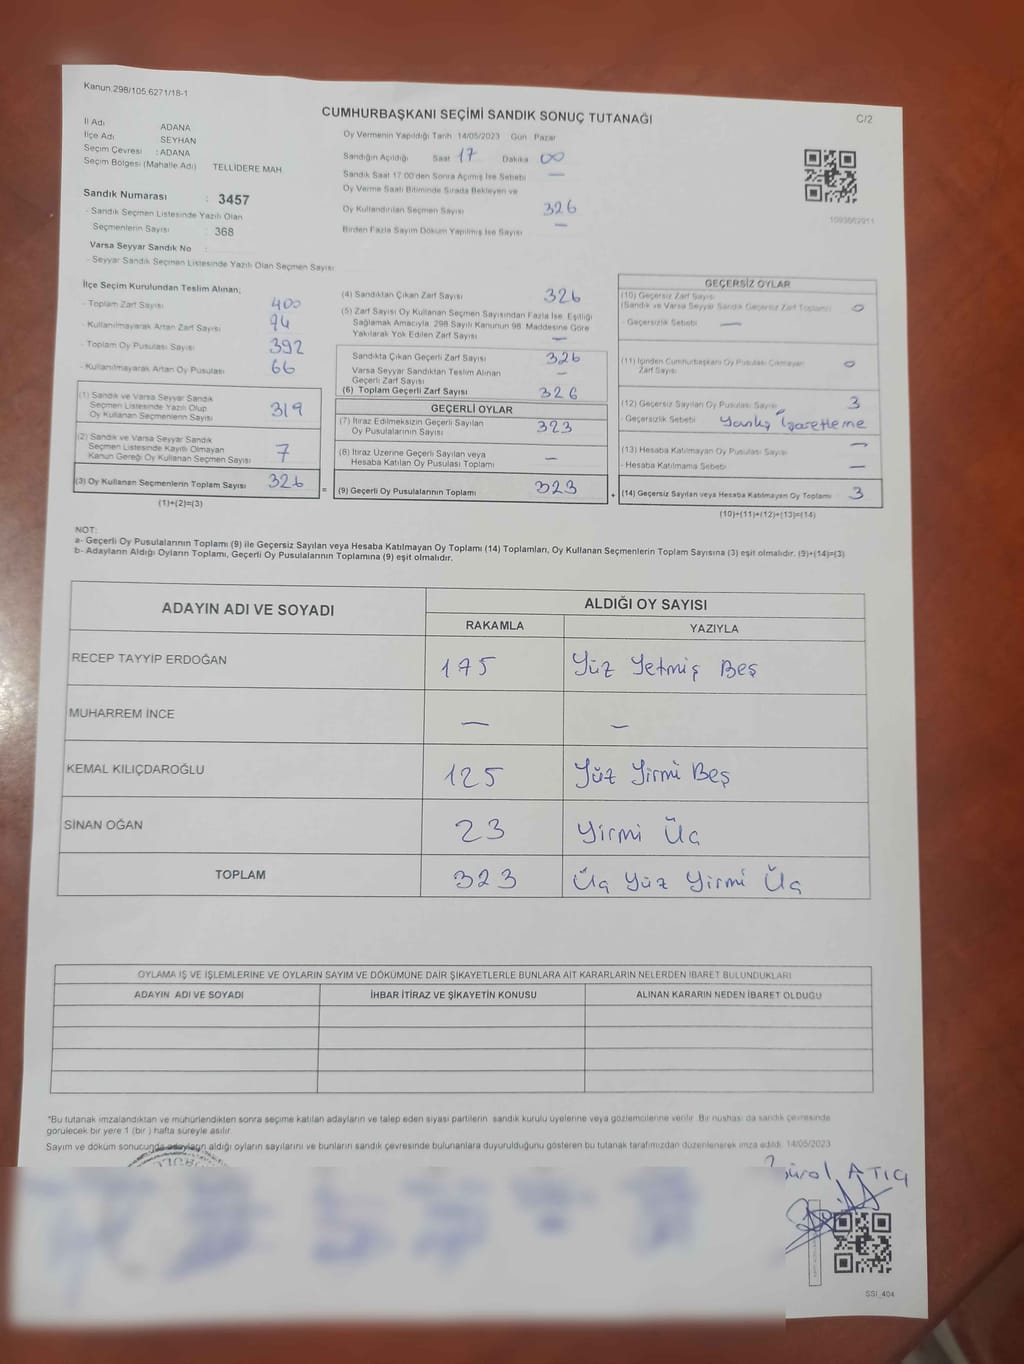 Kanun:298/105 6271/18-1
CUMHURBAŞKANI SEÇİMİ SANDIK SONUÇ TUTANAĞI
C/2
İl Adı ADANA
İlçe Adı SEYHAN
Seçim Çevresi : ADANA
Seçim Bölgesi (Mahalle Adı) TELLİDERE MAH.
Sandık Numarası : 3457
- Sandık Seçmen Listesinde Yazılı Olan
Seçmenlerin Sayısı : 368
Varsa Seyyar Sandık No
- Seyyar Sandık Seçmen Listesinde Yazılı Olan Seçmen Sayısı
Oy Vermenin Yapıldığı Tarih 14/05/2023 Gün Pazar
Sandığın Açıldığı Saat 17 Dakika 00
Sandık Saat 17:00'den Sonra Açımış İse Sebebi —
Oy Verme Saati Bitiminde Sırada Bekleyen ve
Oy Kullandırılan Seçmen Sayısı 326
Birden Fazla Sayım Döküm Yapılmış İse Sayısı —
1093662911
İlçe Seçim Kurulundan Teslim Alınan;
- Toplam Zarf Sayısı 400
- Kullanılmayarak Artan Zarf Sayısı 94
- Toplam Oy Pusulası Sayısı 392
- Kullanılmayarak Artan Oy Pusulası 66
(1) Sandık ve Varsa Seyyar Sandık
Seçmen Listesinde Yazılı Olup
Oy Kullanan Seçmenlerin Sayısı 319
(2) Sandık ve Varsa Seyyar Sandık
Seçmen Listesinde Kayıtlı Olmayan
Kanun Gereği Oy Kullanan Seçmen Sayısı 7
(3) Oy Kullanan Seçmenlerin Toplam Sayısı 326
(1)+(2)=(3)
(4) Sandıktan Çıkan Zarf Sayısı 326
(5) Zarf Sayısı Oy Kullanan Seçmen Sayısından Fazla İse, Eşitliği
Sağlamak Amacıyla, 298 Sayılı Kanunun 98. Maddesine Göre
Yakılarak Yok Edilen Zarf Sayısı —
Sandıkta Çıkan Geçerli Zarf Sayısı 326
Varsa Seyyar Sandıktan Teslim Alınan
Geçerli Zarf Sayısı —
(6) Toplam Geçerli Zarf Sayısı 326
GEÇERLİ OYLAR
(7) İtiraz Edilmeksizin Geçerli Sayılan
Oy Pusulalarının Sayısı 323
(8) İtiraz Üzerine Geçerli Sayılan veya
Hesaba Katılan Oy Pusulası Toplamı —
= (9) Geçerli Oy Pusulalarının Toplamı 323
GEÇERSİZ OYLAR
(10) Geçersiz Zarf Sayısı
(Sandık ve Varsa Seyyar Sandık Geçersiz Zarf Toplamı) 0
- Geçersizlik Sebebi —
(11) İçinden Cumhurbaşkanı Oy Pusulası Çıkmayan
Zarf Sayısı 0
(12) Geçersiz Sayılan Oy Pusulası Sayısı 3
- Geçersizlik Sebebi Yanlış İşaretleme
(13) Hesaba Katılmayan Oy Pusulası Sayısı —
- Hesaba Katılmama Sebebi —
+ (14) Geçersiz Sayılan veya Hesaba Katılmayan Oy Toplamı 3
(10)+(11)+(12)+(13)=(14)
NOT:
a- Geçerli Oy Pusulalarının Toplamı (9) ile Geçersiz Sayılan veya Hesaba Katılmayan Oy Toplamı (14) Toplamları, Oy Kullanan Seçmenlerin Toplam Sayısına (3) eşit olmalıdır. (9)+(14)=(3)
b- Adayların Aldığı Oyların Toplamı, Geçerli Oy Pusulalarının Toplamına (9) eşit olmalıdır.
ADAYIN ADI VE SOYADI ALDIĞI OY SAYISI
RAKAMLA YAZIYLA
RECEP TAYYİP ERDOĞAN 175 Yüz Yetmiş Beş
MUHARREM İNCE — —
KEMAL KILIÇDAROĞLU 125 Yüz Yirmi Beş
SİNAN OĞAN 23 Yirmi Üç
TOPLAM 323 Üç Yüz Yirmi Üç
OYLAMA İŞ VE İŞLEMLERİNE VE OYLARIN SAYIM VE DÖKÜMÜNE DAİR ŞİKAYETLERLE BUNLARA AİT KARARLARIN NELERDEN İBARET BULUNDUKLARI
ADAYIN ADI VE SOYADI İHBAR İTİRAZ VE ŞİKAYETİN KONUSU ALINAN KARARIN NEDEN İBARET OLDUĞU
*Bu tutanak imzalandıktan ve mühürlendikten sonra seçime katılan adayların ve talep eden siyasi partilerin sandık kurulu üyelerine veya gözlemcilerine verilir. Bir nushası da sandık çevresinde
görülecek bir yere 1 (bir ) hafta süreyle asılır.
Sayım ve döküm sonucunda adayların aldığı oyların sayılarını ve bunların sandık çevresinde bulunanlara duyurulduğunu gösteren bu tutanak tarafımızdan düzenlenerek imza edildi. 14/05/2023
ATICI
SSİ_404